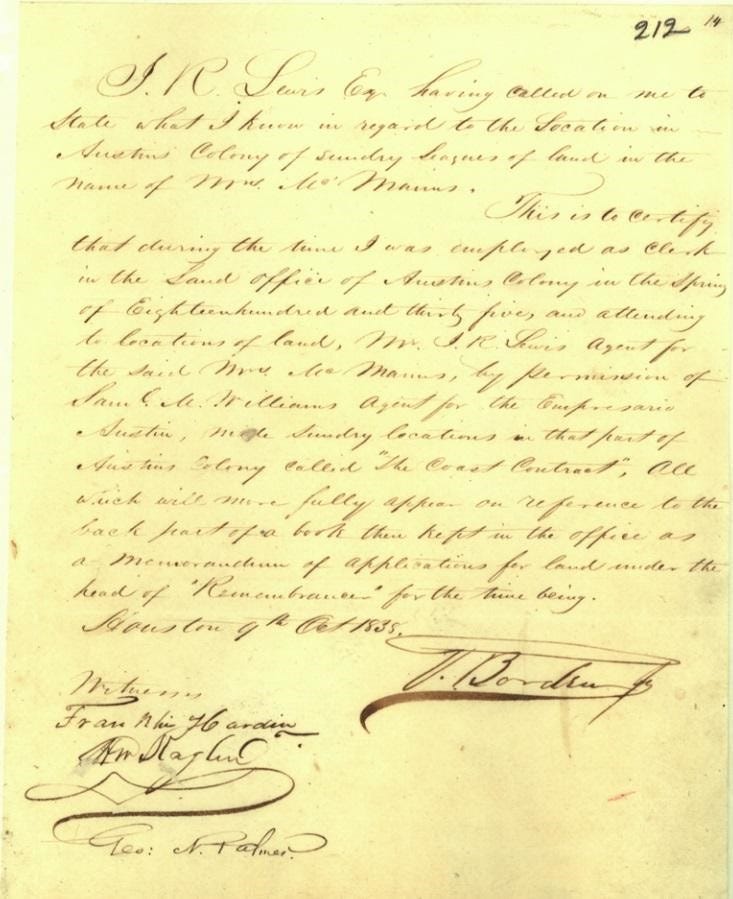 212 14
I. R. Lewis Esqr having called on me to
State what I know in regard to the Location in
Austins Colony of sundry leagues of land in the
name of Mrs. McManus.
This is to certify
that during the time I was employed as Clerk
in the Land office of Austins Colony in the Spring
of Eighteenhundred and thirty five, and attending
to locations of land, Mr. I. R. Lewis Agent for
the said Mrs McManus, by permission of
Saml. M. Williams Agent for the Empresario
Austin, made sundry locations in that part of
Austins Colony called "The Coast Contract", All
which will more fully appear on reference to the
back part of a book then kept in the office as
a memorandum of applications for land under the
head of "Remembrancer" for the time being.
Houston 9th Oct 1838.
Borden
Witnesses
Franklin Hardin
Geo: N. Palmer.